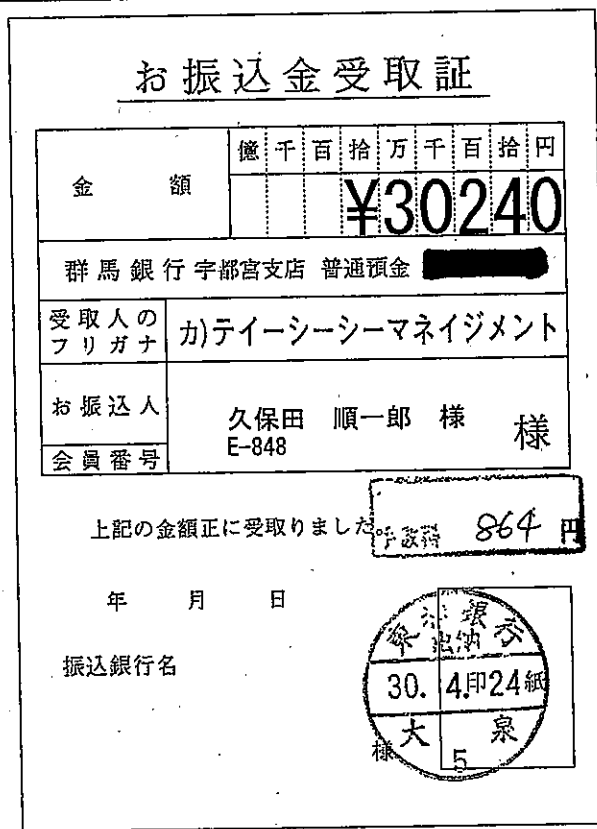 お振込金受取証
金額
億千百拾万千百拾円
¥30240
群馬銀行宇都宮支店 普通預金
受取人のフリガナ
カ)テイーシーシーマネイジメント
お振込人
久保田 順一郎 様 様
会員番号
E-848
上記の金額正に受取りました
手数料 864 円
年 月 日
振込銀行名
銀行
出納
30. 4.印24紙
様 大 泉
5